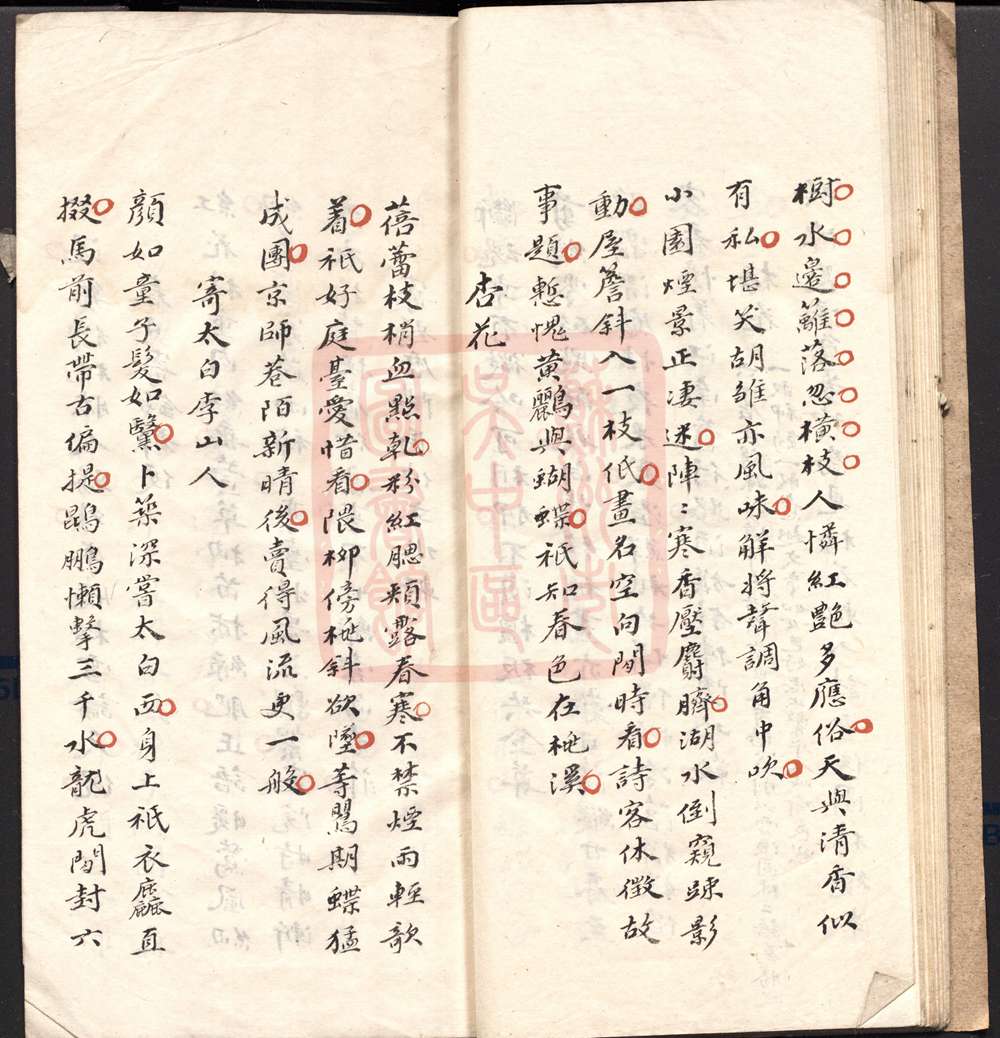 樹水邊籬落忽橫枝人憐紅艷多應俗天與清香似
有私堪笑胡雛亦風味解將聲調角中吹
小園煙景正淒迷陣〻寒香壓麝臍湖水倒窺疎影
動屋簷斜入一枝低畫名空向閒時看詩客休徵故
事題慙愧黃鸝與蝴蝶祇知春色在桃溪
杏花
蓓蕾枝梢血點乾粉紅腮頰露春寒不禁煙雨輕欹
着祇好庭臺愛惜看隈柳傍桃斜欲墜等鶯期蝶猛
成團京師巷陌新晴後賣得風流更一般
寄太白李山人
顏如童子髮如鷖卜築深嵓太白西身上祇衣麤直
掇馬前長帶古偏提鵾鵬懶擊三千水龍虎閒封六